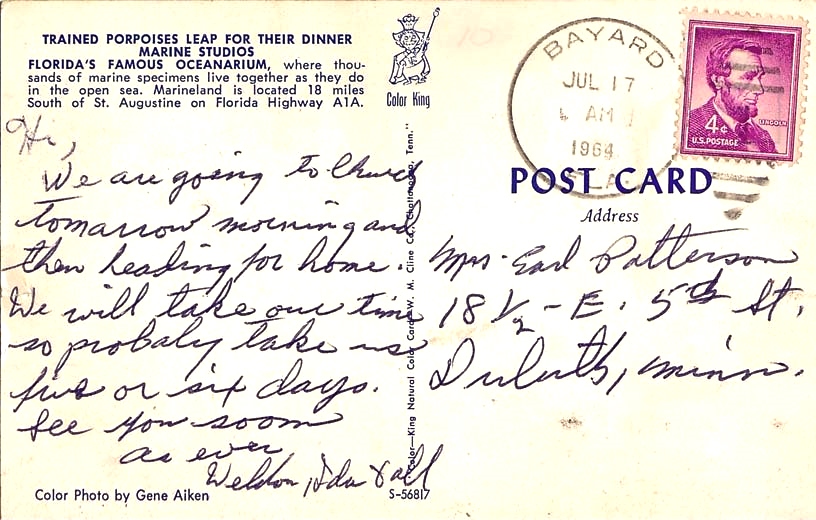 TRAINED PORPOISES LEAP FOR THEIR DINNER
MARINE STUDIOS
FLORIDA'S FAMOUS OCEANARIUM, where thou-
sands of marine specimens live together as they do
in the open sea. Marineland is located 18 miles
South of St. Augustine on Florida Highway A1A.
Color King
Hi,
We are going to Church
tomarrow morning and
then heading for home.
We will take our time
so probaly take us
five or six days.
See you soon
as ever
Weldon, Ida & all
Color Photo by Gene Aiken
S-56817
Color—King Natural Color Card, W. M. Cline Co., Chattanooga, Tenn."
BAYARD
JUL 17
AM
1964
FLA
LINCOLN
4¢
U.S. POSTAGE
POST CARD
Address
Mrs. Earl Patterson
18½ - E. 5th St.
Duluth, Minn.